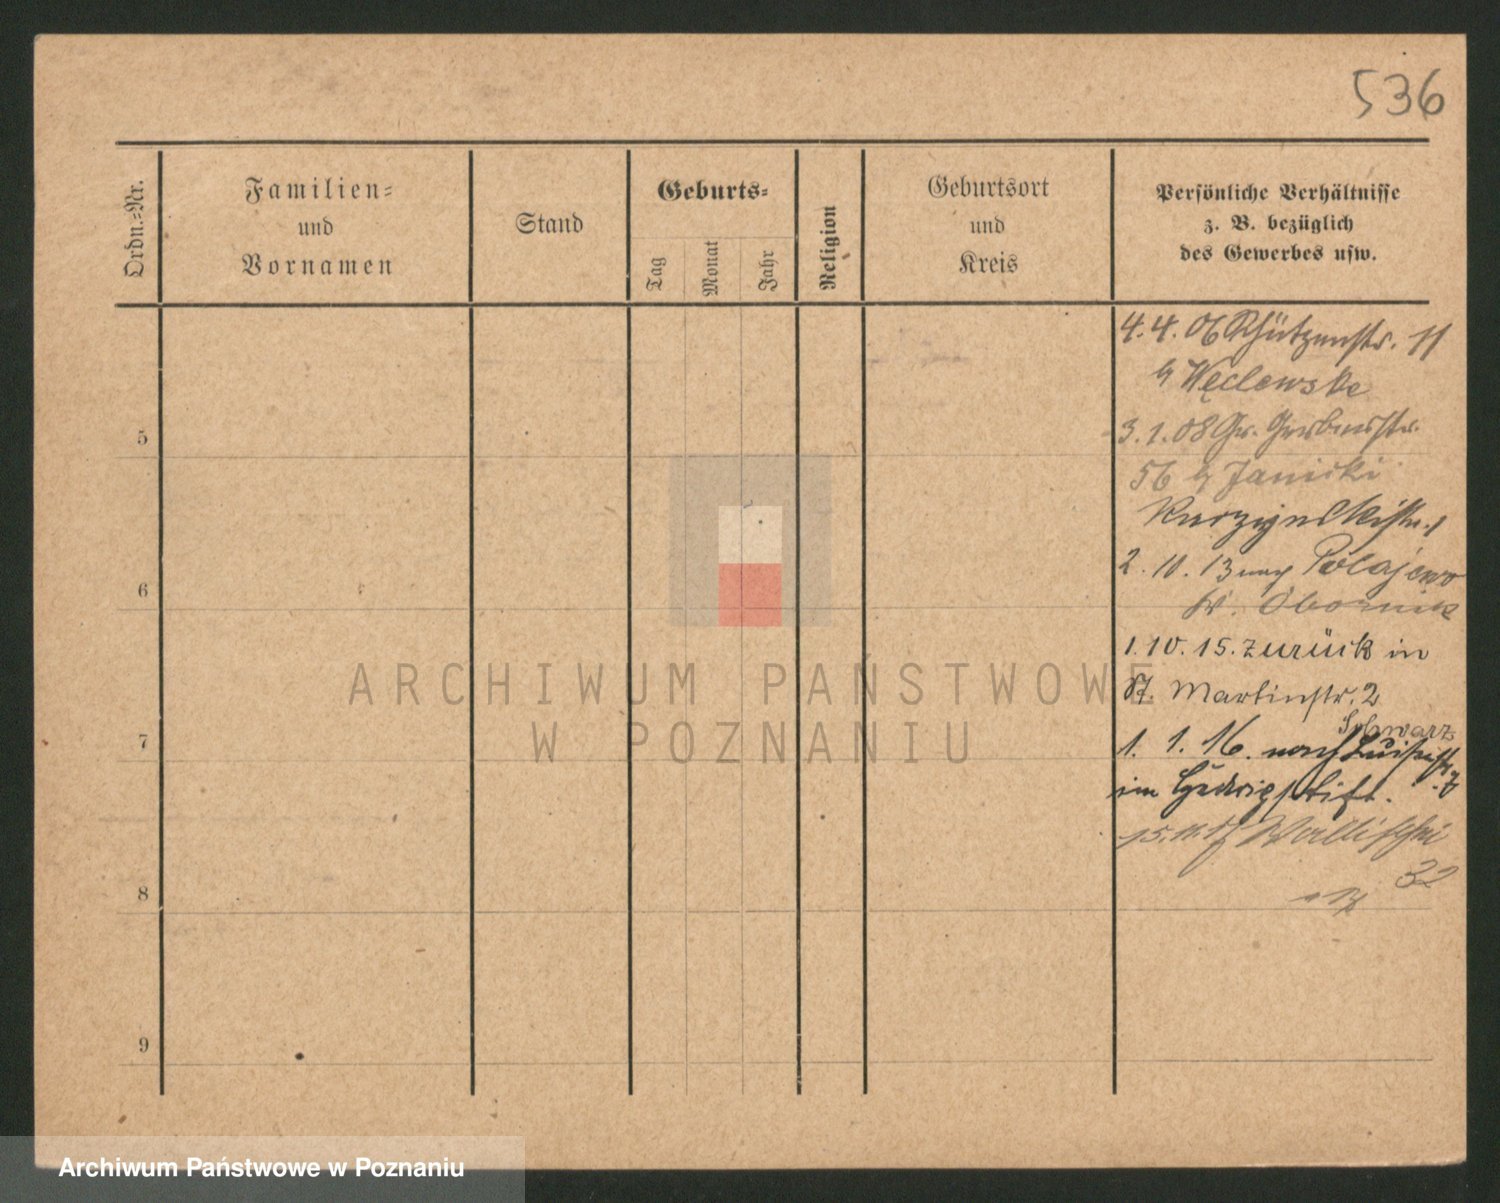 536
Ordn.-Nr.
Familien-
und
Vornamen
Stand
Geburts-
Tag
Monat
Jahr
Religion
Geburtsort
und
Kreis
Persönliche Verhältnisse
z. B. bezüglich
des Gewerbes usw.
4. 4. 06 Schützenstr. 11
b/ Węclewske
3. 1. 08 Gr. Gerberstr.
5
56 b/ Janicki
2. 10. 13 nach Polajewo
6
Kr. Obornik
1. 10. 15. zurück in
St. Martinstr. 2
Schwarz
7
1. 1. 16. nach Luisenstr.
im Hedwigstift.
15. 11. 17 Wallischei
32
8
9
ARCHIWUM PAŃSTWOWE
W POZNANIU
Archiwum Państwowe w Poznaniu